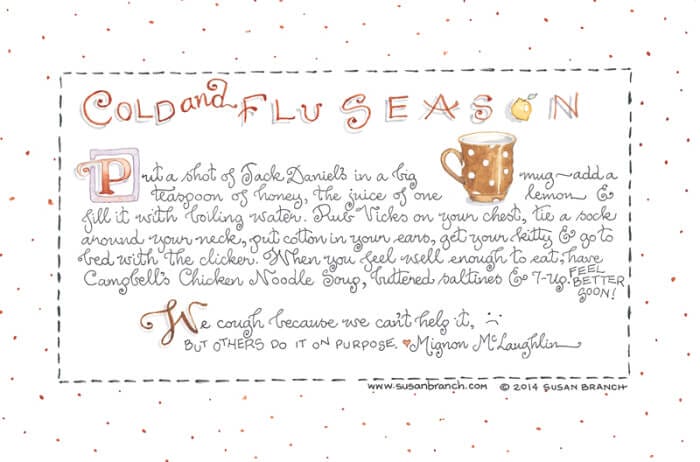 COLD and FLU SEASON
Put a shot of Jack Daniels in a big mug~add a
teaspoon of honey, the juice of one lemon &
fill it with boiling water. Rub Vicks on your chest, tie a sock
around your neck, put cotton in your ears, get your kitty & go to
bed with the clicker. When you feel well enough to eat, have
Campbell's Chicken Noodle Soup, buttered saltines & 7-Up. FEEL
BETTER
SOON!
We cough because we can't help it,
BUT OTHERS DO IT ON PURPOSE. ♥Mignon McLaughlin
www.susanbranch.com © 2014 SUSAN BRANCH